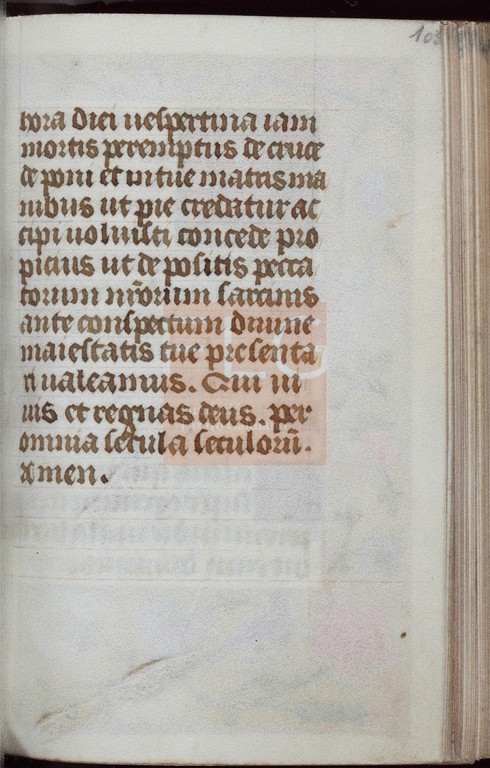 103
hora diei uespertina iam
mortis peremptus de cruce
de poni et in tue matris ma
nibus ut pie credatur ac
cipi uoluisti concede pro
picius ut de positis pecca
torum nr̄orum sarcinis
ante conspectum diuine
maiestatis tue presenta
ri ualeamus. Qui ui
uis et regnas deus. per
omnia secula seculorū.
Amen.
LG